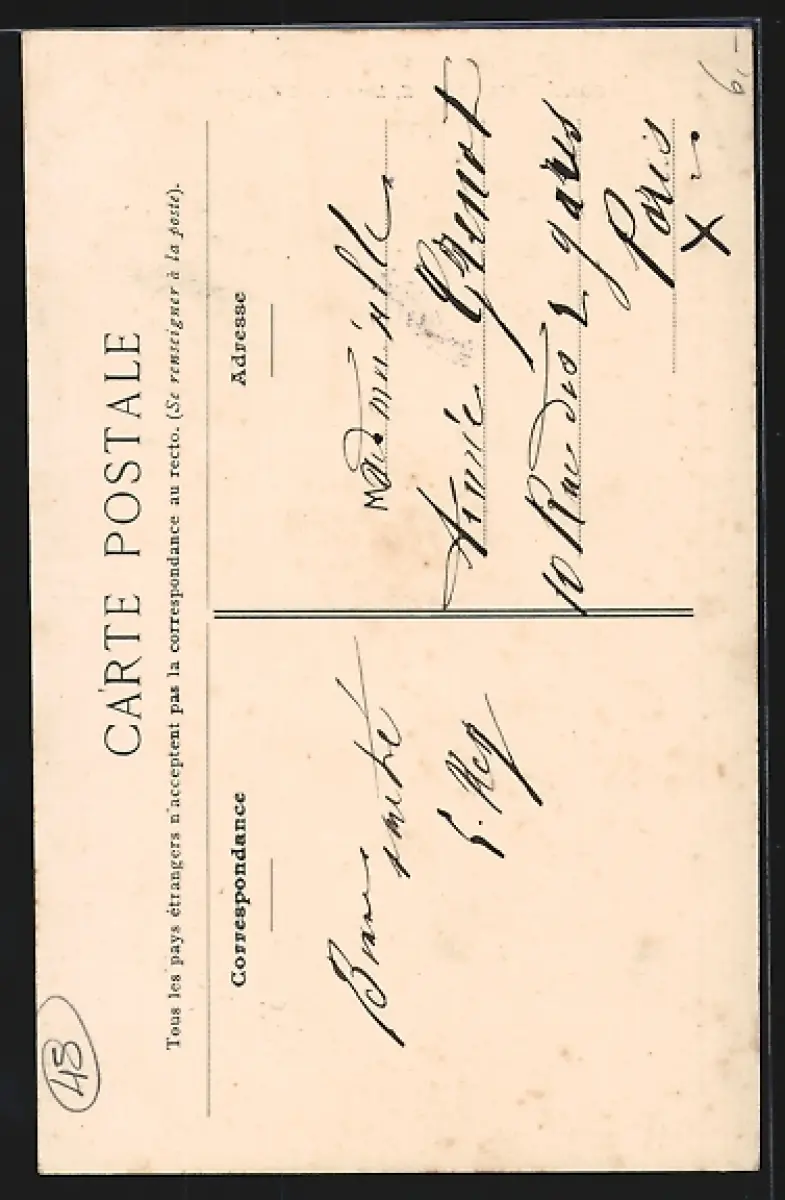 CARTE POSTALE
Tous les pays étrangers n'acceptent pas la correspondance au recto. (Se renseigner à la poste).
Correspondance
Bonne
amitié
Adresse
Mademoiselle
10 Rue des 2 gares
Paris
X
48
6,-